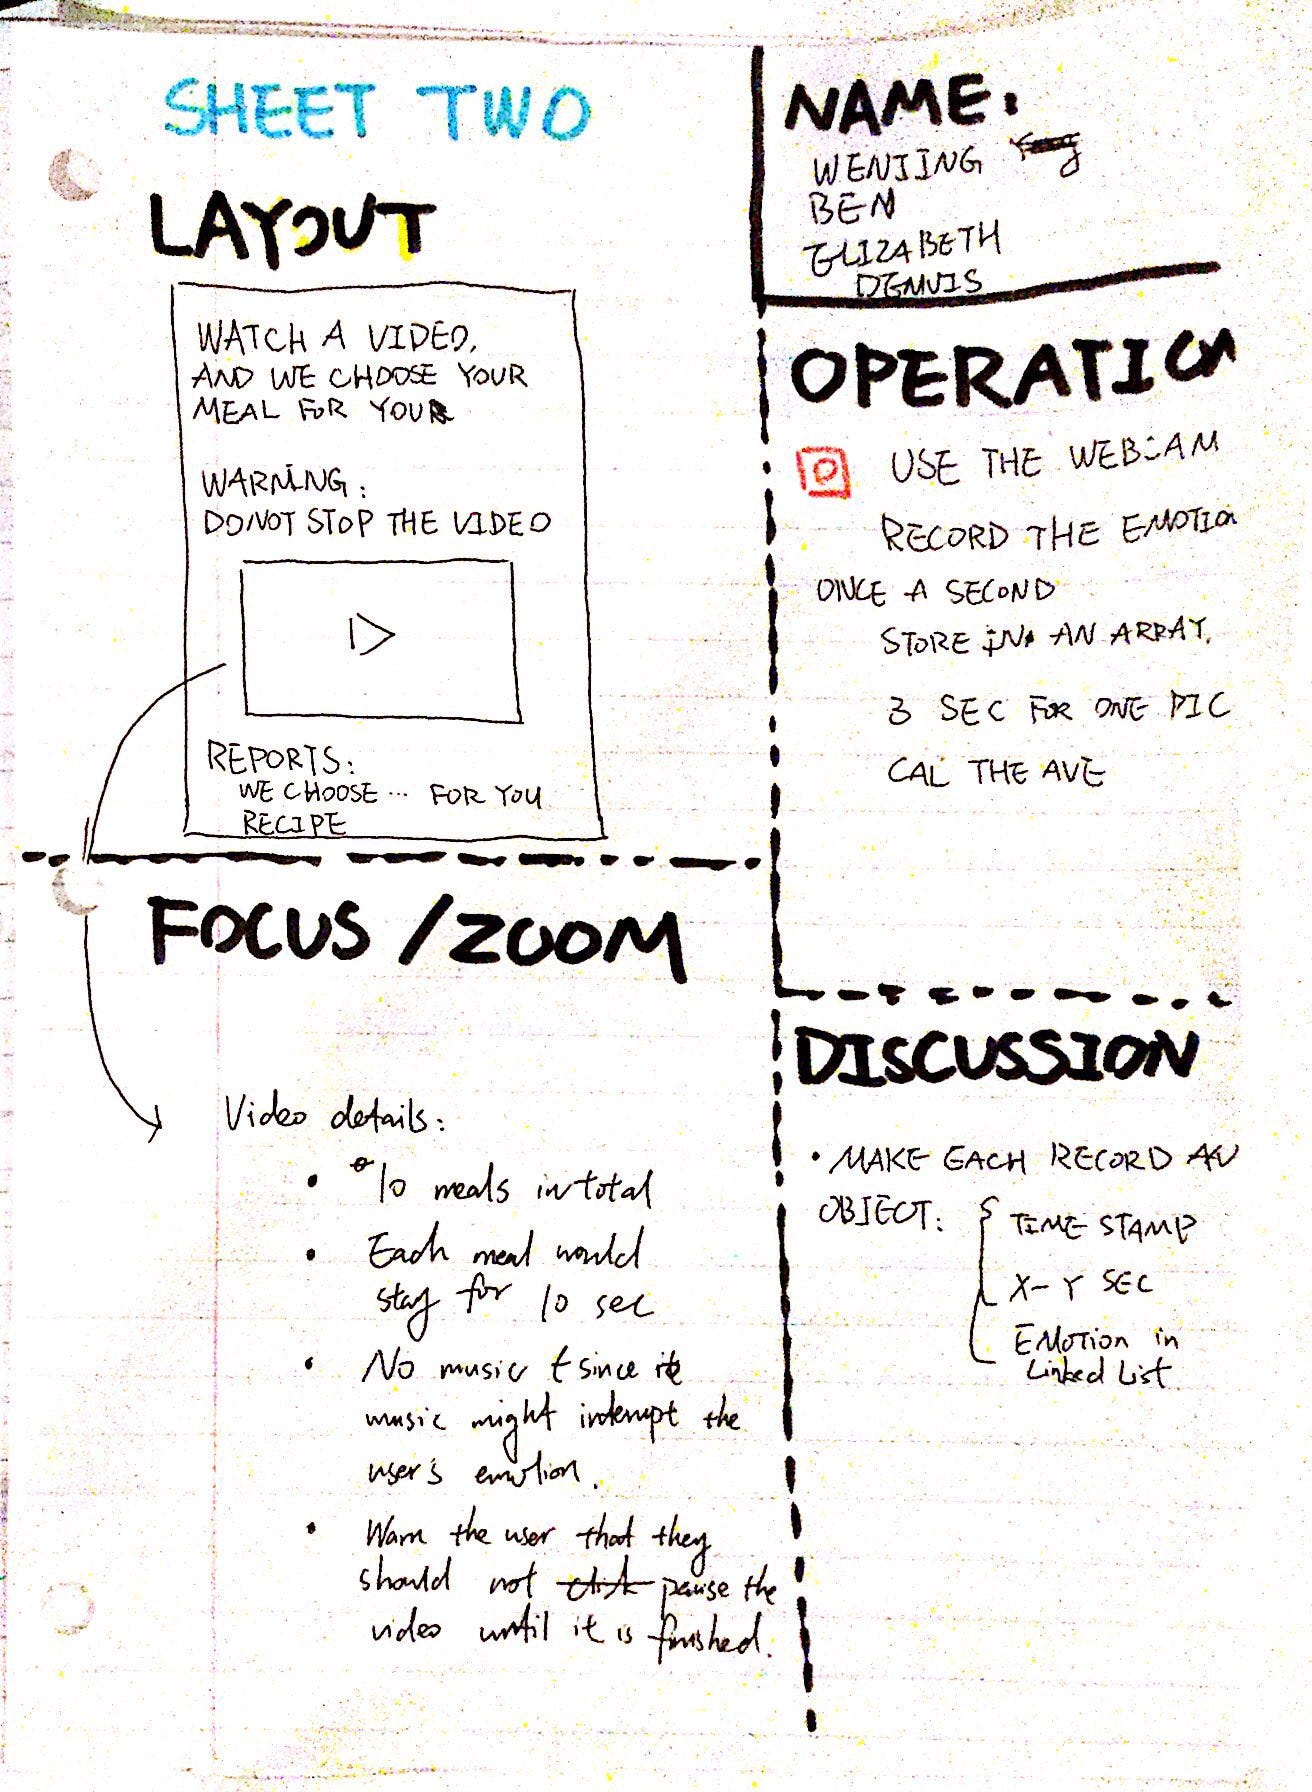 SHEET TWO
LAYOUT
WATCH A VIDEO,
AND WE CHOOSE YOUR
MEAL FOR YOU
WARNING:
DONOT STOP THE VIDEO
REPORTS:
WE CHOOSE ... FOR YOU
RECIPE
NAME:
WENJING
BEN
ELIZABETH
DENNIS
OPERATION
USE THE WEBCAM
RECORD THE EMOTION
ONCE A SECOND
STORE IN AN ARRAY.
3 SEC FOR ONE PIC
CAL THE AVE
FOCUS / ZOOM
Video details:
• 10 meals in total
• Each meal would
stay for 10 sec
• No music since
music might interrupt the
user's emotion.
• Warn the user that they
should not pause the
video until it is finished.
DISCUSSION
• MAKE EACH RECORD AN
OBJECT: { TIME STAMP
X-Y SEC
EMOTION in
Linked List